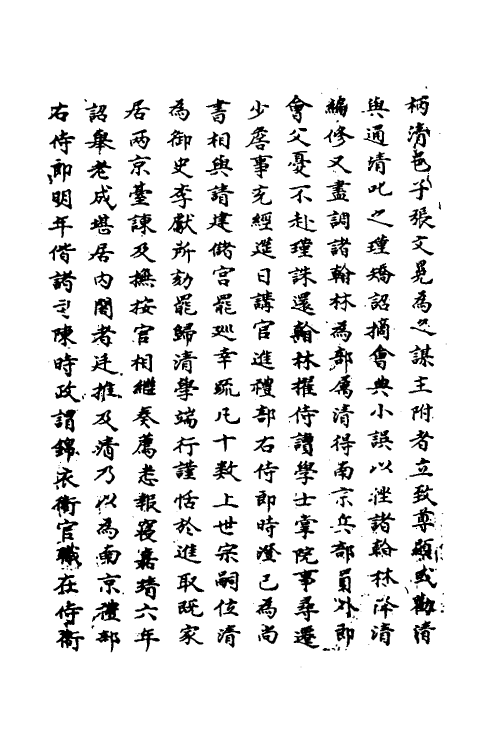 柄清邑子張文冕為之謀主附者立致尊顯或勸清
與通清叱之瑾矯詔摘會典小誤以挫諸翰林降清
編修又盡調諸翰林為部属清得南京兵部員外郎
會父憂不赴瑾誅還翰林擢侍讀學士掌院事尋遷
少詹事充經筵日講官進禮部右侍郎時澄已為尚
書相與請建儲宮罷廵幸疏凡十數上世宗嗣位清
為御史李獻所劾罷歸清學端行謹恬於進取既家
居兩京臺諫及撫按官相繼奏薦悉報寢嘉靖六年
詔舉老成堪居內閣者廷推及清乃以為南京禮部
右侍郎明年偕諸司陳時政謂錦衣衛官職在侍衛